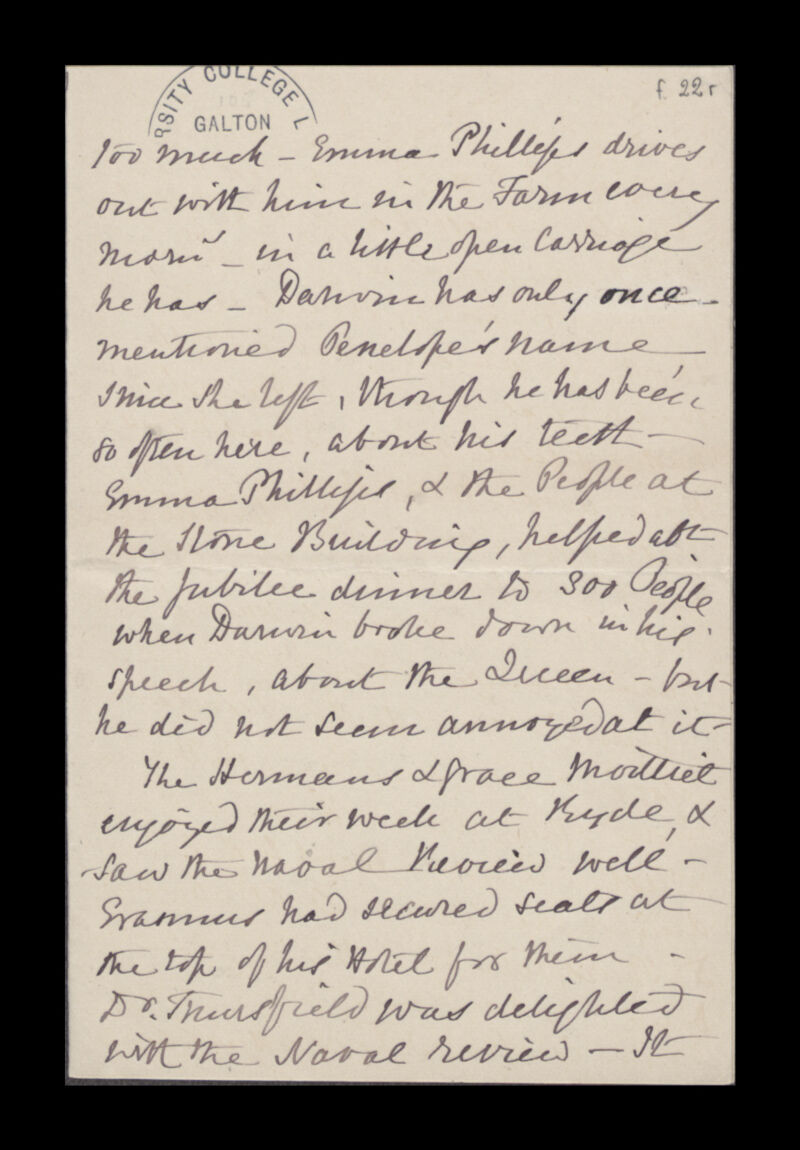 f. 22r
RSITY COLLEGE L
GALTON
too much – Emma Phillips drives
out with him in the Farm every
morng – in a little open Carriage
he has – Darwin has only once
mentioned Penelope's name
since she left, though he has been
so often here, about his teeth –
Emma Phillips, & the People at
the Stone Building, helped abt
the Jubilee dinner to 300 People
when Darwin broke down in his
speech, about the Queen – but
he did not seem annoyed at it –
The Hermans & Grace
enjoyed their week at Ryde, &
saw the Naval Review well –
Erasmus had secured seats at
the top of his Hotel for them –
Dr. Thursfield was delighted
with the Naval review – It